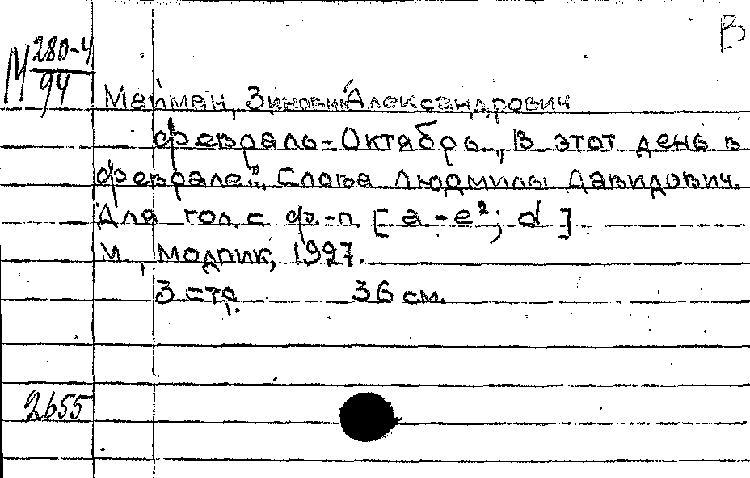 В
М 280-4
94
Мейман, Зиновий Александрович
Февраль-Октябрь. „В этот день в
феврале“, Слова Людмилы Давидович.
Для гол. с ф.-п. [a-e²; d]
М., Модпик, 1927.
3 стр. 36 см.
2655